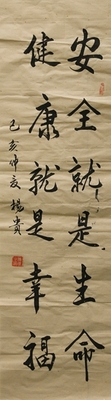 安全就是生命
健康就是幸福
己亥仲夏楊貴